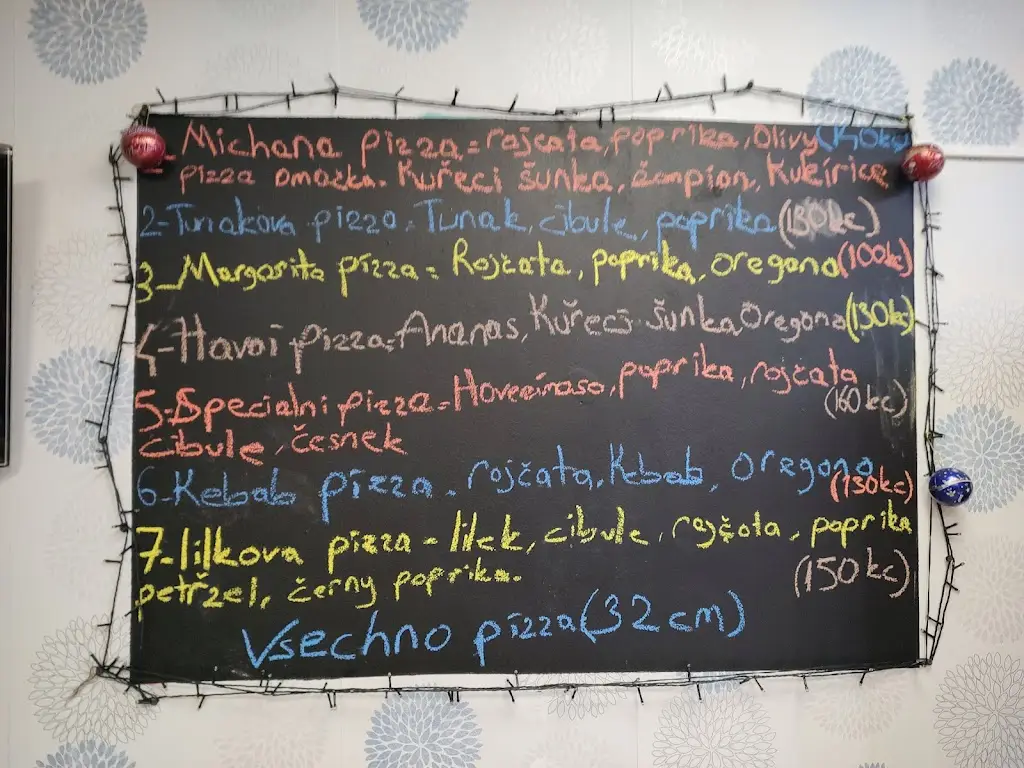 Michana pizza = rajčata, paprika, Olivy (140kc)
pizza omačka. Kuřeci šunka, žampion, Kukirice
2-Tunakova pizza = Tunak, cibule, paprika (130kc)
3_Margarita pizza = Rajčata, paprika, oregano (100kc)
4-Havai pizza = Ananas, Kuřeci šunka Oregano (130kc)
5-Specialni pizza = Hovecimaso, paprika, rajčata
(160kc)
cibule, česnek
6-Kebab pizza - rajčata, Kebab, oregano (130kc)
7-lilkova pizza - lilek, cibule, rajčata, paprika
petržel, černy paprika. (150kc)
Vsechno pizza (32cm)